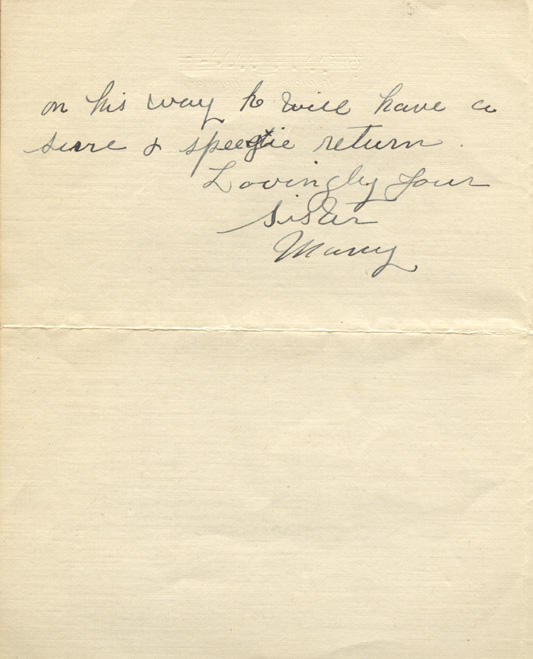 on his way he will have a
sure & speedie return.
Lovingly your
Sister
Marcy